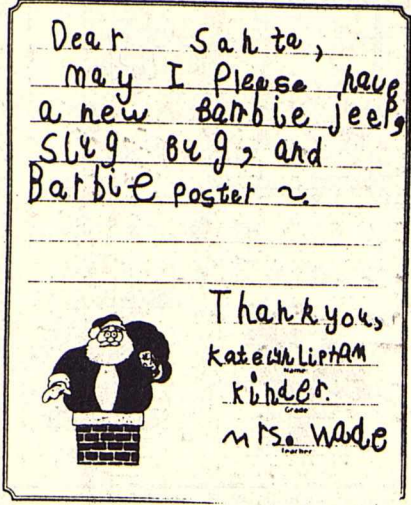 Dear Santa,
may I Please have
a new Barbie jeep,
Slug Bug, and
Barbie poster ~.
Thank you,
Katelyn Lipham
Name
kinder.
Grade
mrs. Wade
Teacher